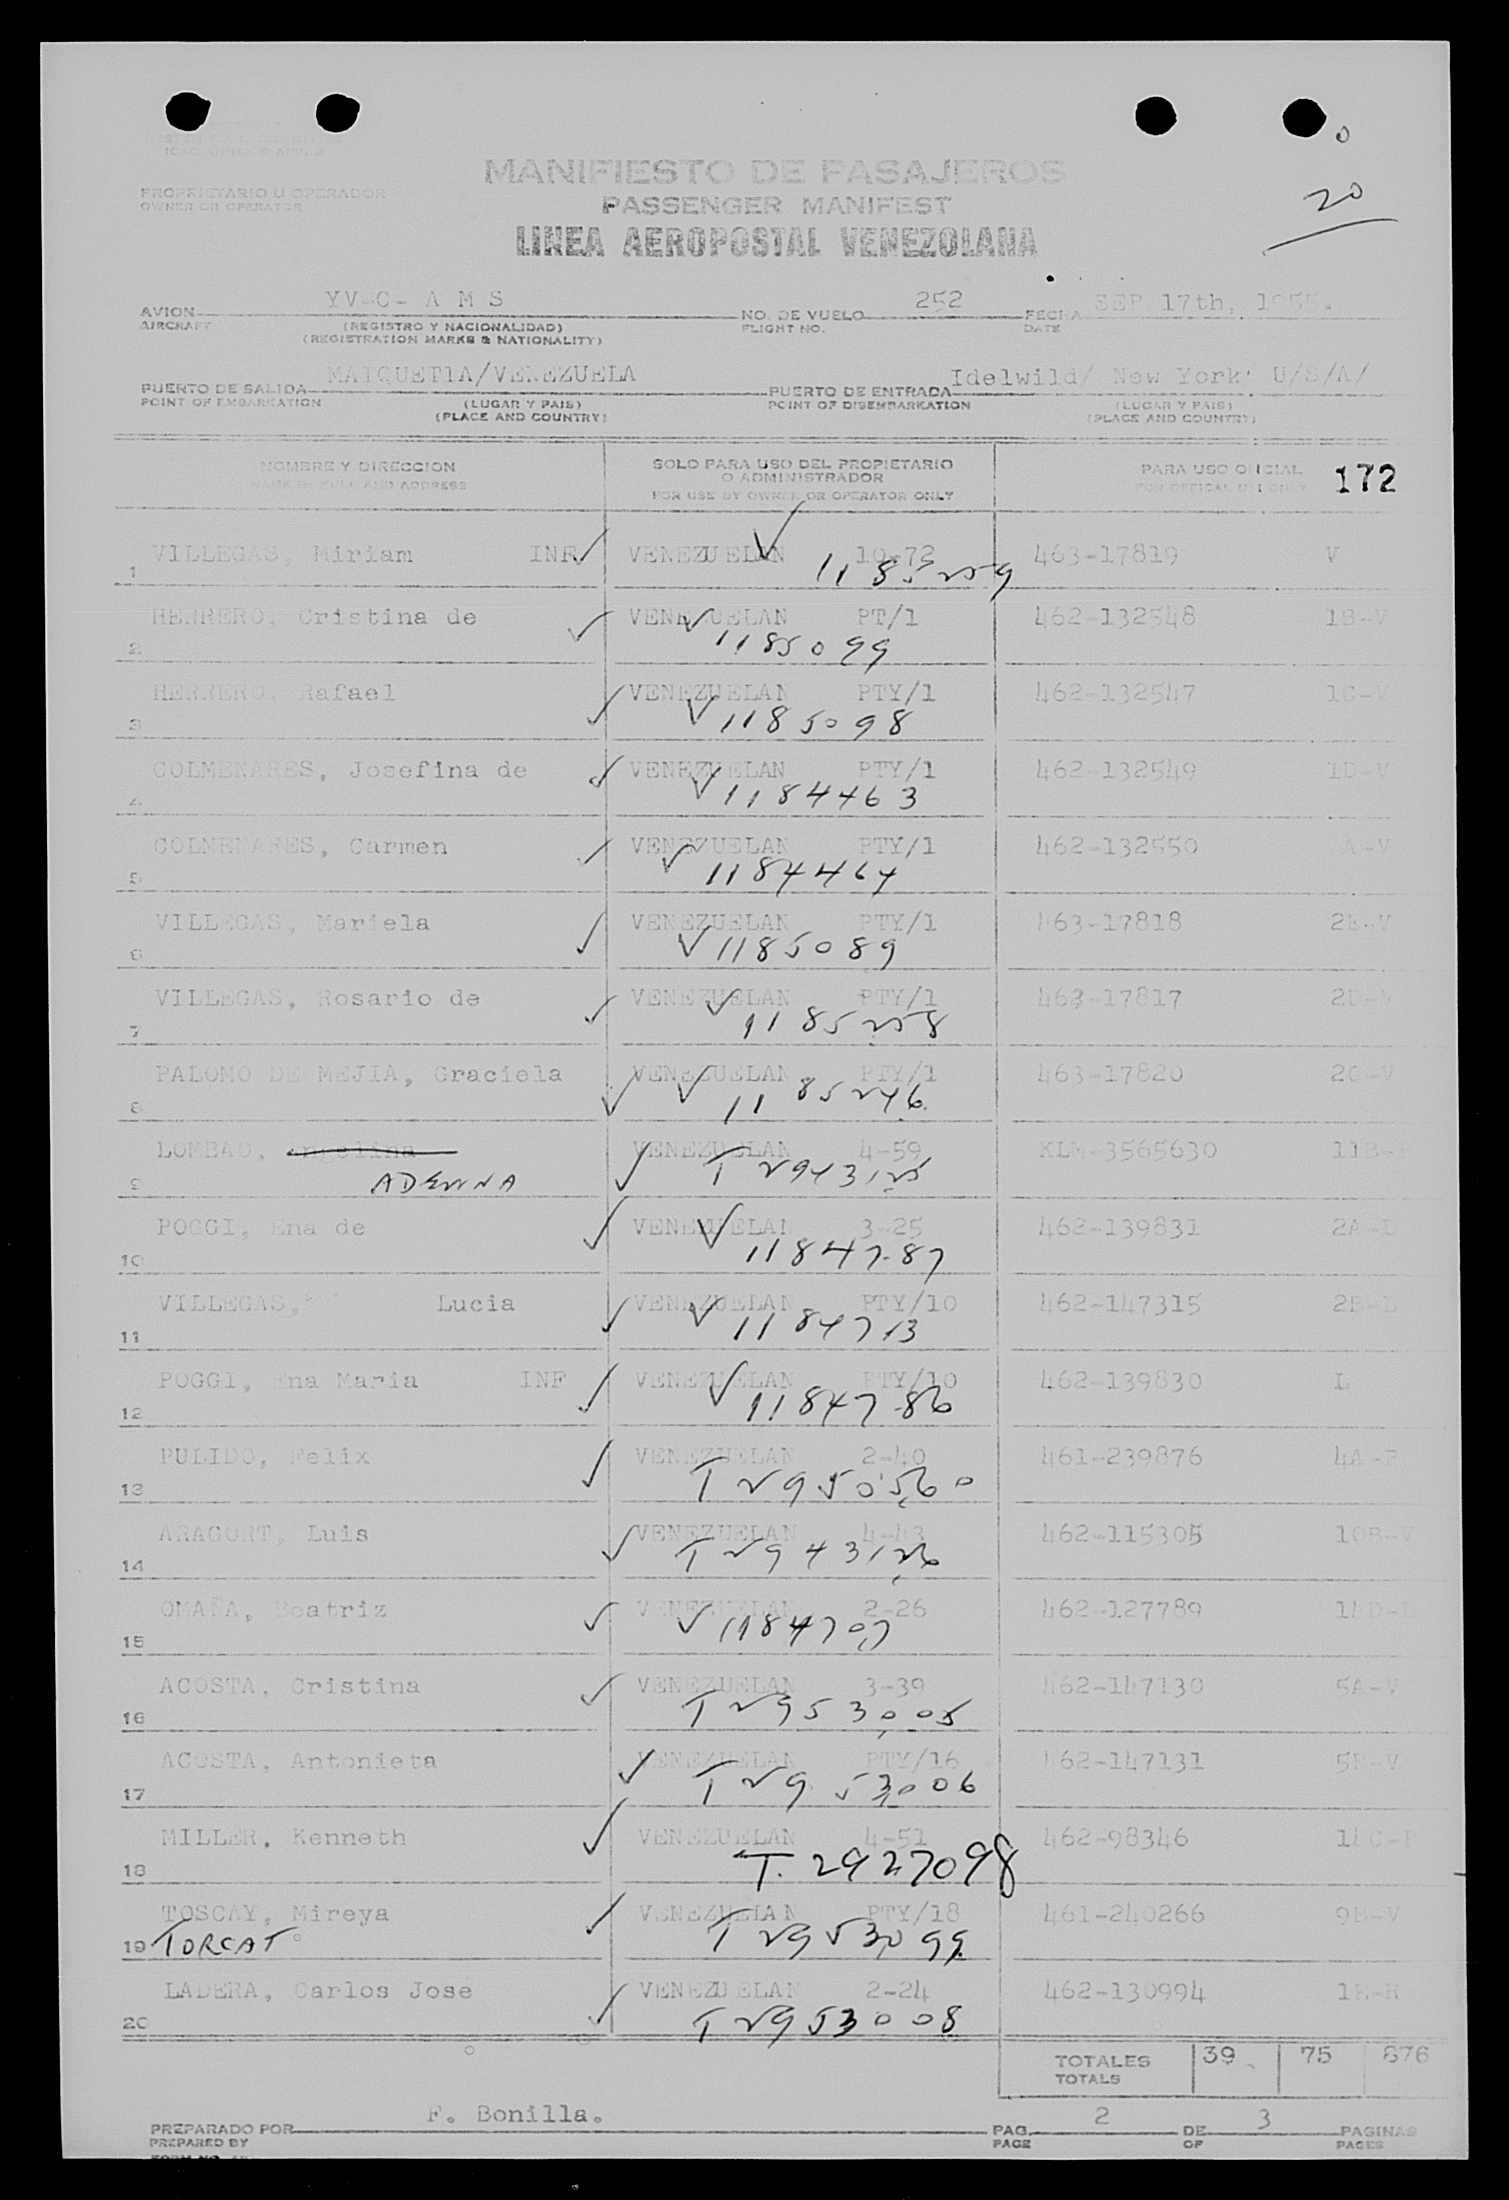 20
MANIFIESTO DE PASAJEROS
PROPRIETARIO U OPERADOR
OWNER OR OPERATOR
PASSENGER MANIFEST
LINEA AEROPOSTAL VENEZOLANA
AVION YV-C- A M S NO. DE VUELO 252 FECHA SEP 17th, 1955.
AIRCRAFT (REGISTRO Y NACIONALIDAD) FLIGHT NO. DATE
(REGISTRATION MARKS & NATIONALITY)
PUERTO DE SALIDA MAIQUETIA/VENEZUELA PUERTO DE ENTRADA Idelwild/ New York' U/S/A/
POINT OF EMBARKATION (LUGAR Y PAIS) POINT OF DISEMBARKATION (LUGAR Y PAIS)
(PLACE AND COUNTRY) (PLACE AND COUNTRY)
NOMBRE Y DIRECCION SOLO PARA USO DEL PROPIETARIO O ADMINISTRADOR PARA USO OFICIAL 172
NAME IN FULL AND ADDRESS FOR USE BY OWNER OR OPERATOR ONLY FOR OFFICAL USE ONLY
1 VILLEGAS, Miriam INF VENEZUELAN 10-72 463-17819 V
1185259
2 HERRERO, Cristina de VENEZUELAN PT/1 462-132548 1B-V
1185099
3 HERRERO, Rafael VENEZUELAN PTY/1 462-132547 1C-V
1185098
4 COLMENARES, Josefina de VENEZUELAN PTY/1 462-132549 1D-V
1184463
5 COLMENARES, Carmen VENEZUELAN PTY/1 462-132550 A-V
1184464
6 VILLEGAS, Mariela VENEZUELAN PTY/1 463-17818
1185089
7 VILLEGAS, Rosario de VENEZUELAN PTY/1 463-17817
1185258
8 PALOMO DE MEJIA, Graciela VENEZUELAN PTY/1 463-17820 2C-V
1185246
9 LOMBAO, Angelina VENEZUELAN 4-59 KLM-3565630
T 2943125
10 POGGI, Ena de VENEZUELAN 3-25 462-139831
1184787
11 VILLEGAS, Lucia VENEZUELAN PTY/10 462-147315
1184713
12 POGGI, Ena Maria INF VENEZUELAN PTY/10 462-139830 L
1184786
13 PULIDO, Felix VENEZUELAN 2-40 461-239876
T 2950560
14 ARAGORT, Luis VENEZUELAN 4-43 462-115305 10B-V
T 2943126
15 OMAÑA, Beatriz VENEZUELAN 2-26 462-127789
1184707
16 ACOSTA, Cristina VENEZUELAN 3-39 462-147130 5A-V
T 2953005
17 ACOSTA, Antonieta VENEZUELAN PTY/16 462-147131
T 2953006
18 MILLER, Kenneth VENEZUELAN 4-51 462-98346
T. 2927098
19 TOSCAY, Mireya VENEZUELAN PTY/18 461-240266 9B-V
TORCAT T 2953099
20 LADERA, Carlos Jose VENEZUELAN 2-24 462-130994
T 2953008
TOTALES 39 75 876
TOTALS
PREPARADO POR F. Bonilla. PAG. 2 DE 3 PAGINAS
PREPARED BY PAGE OF PAGES